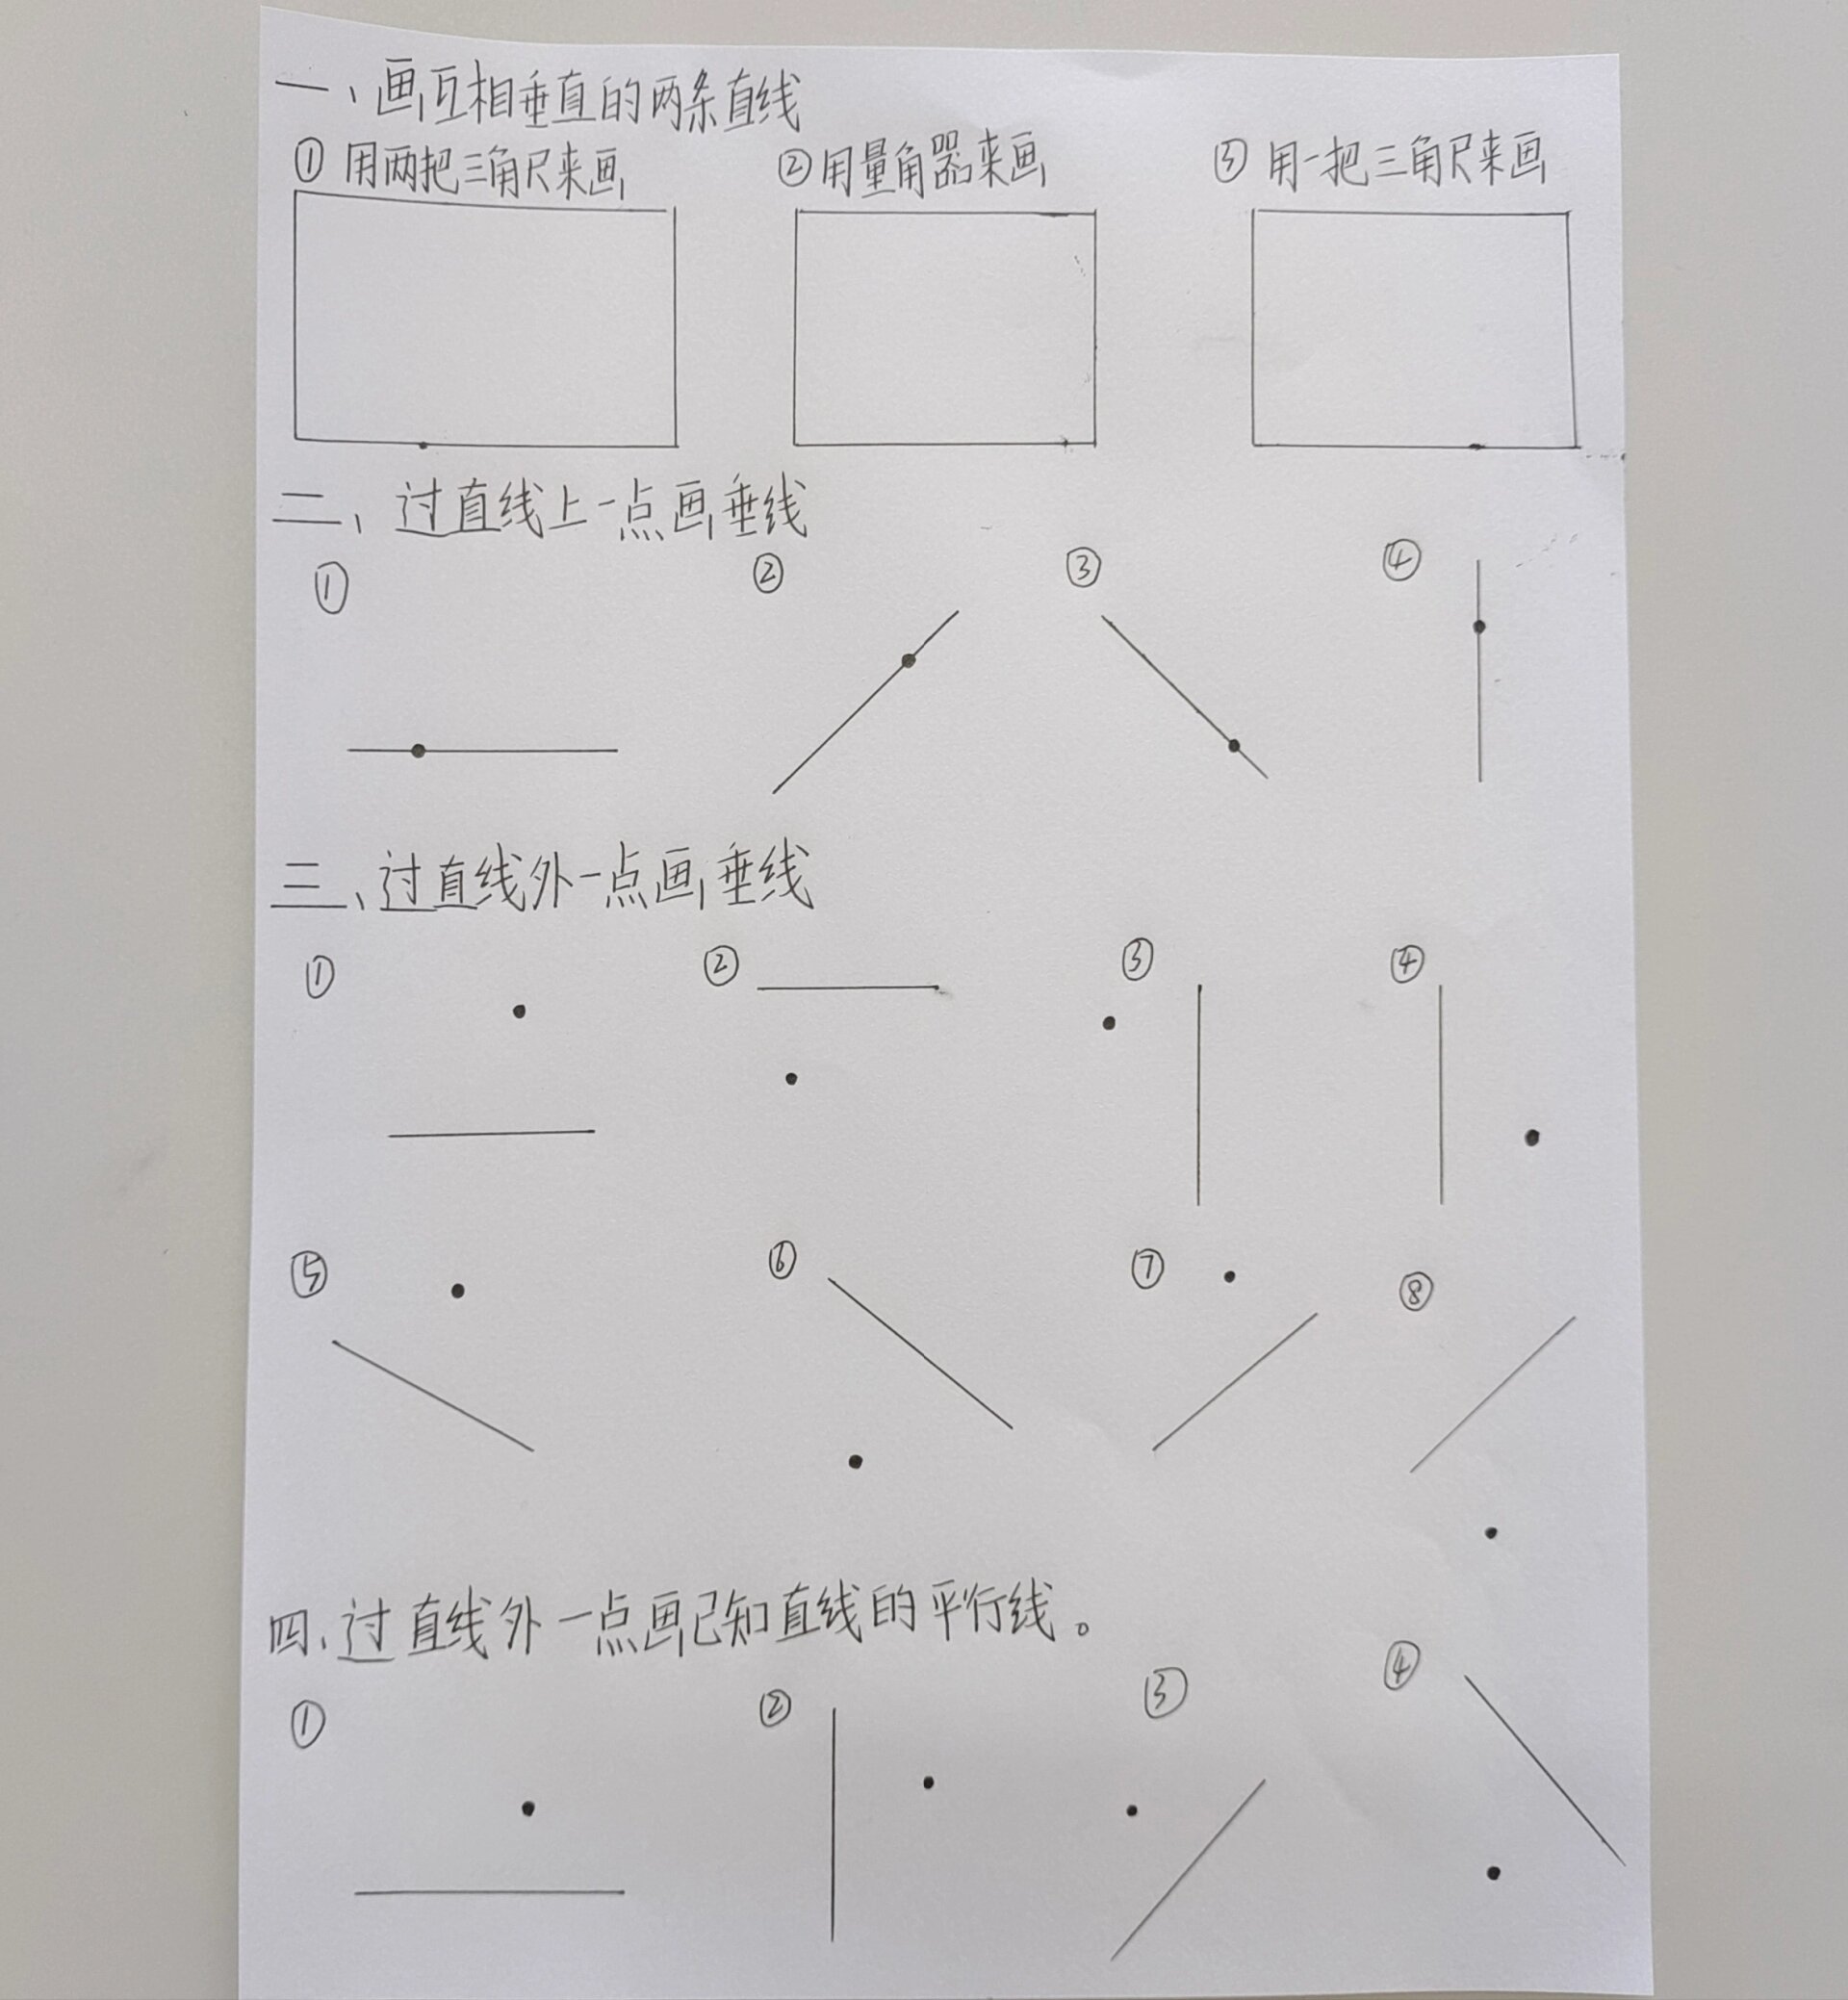 一、画互相垂直的两条直线
① 用两把三角尺来画 ② 用量角器来画 ③ 用一把三角尺来画
二、过直线上一点画垂线
① ② ③ ④
三、过直线外一点画垂线
① ② ③ ④
⑤ ⑥ ⑦ ⑧
四、过直线外一点画已知直线的平行线。
① ② ③ ④